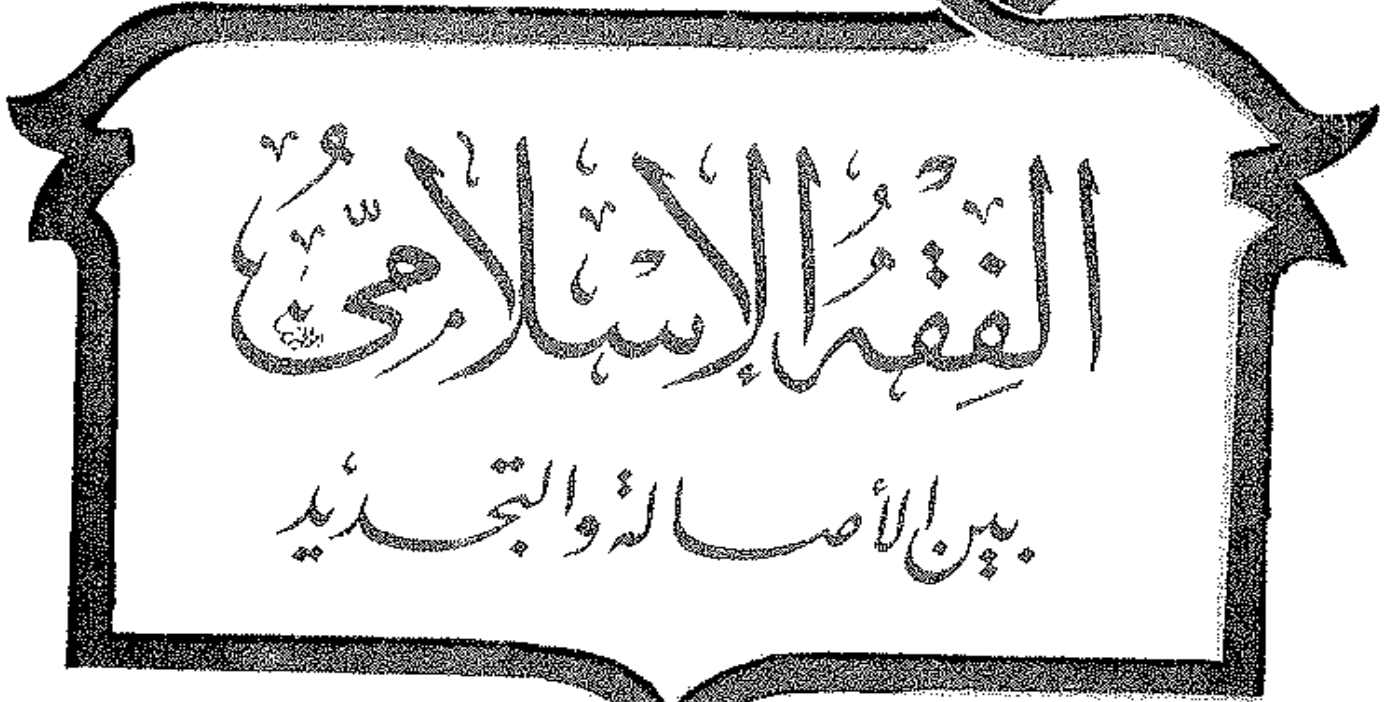 الفِقْهُ الإِسْلَامِيُّ
بين الأصالة والتجديد